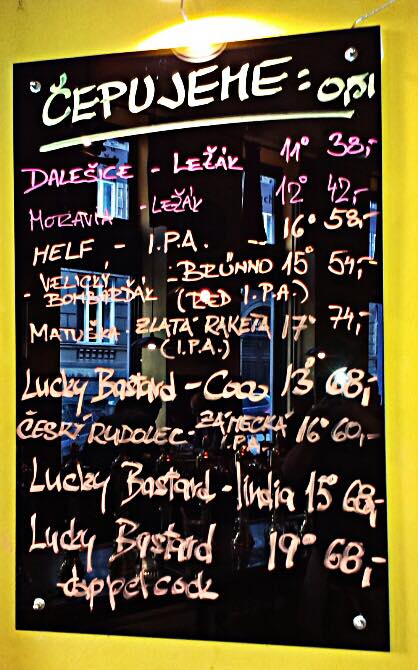 ČEPUJEME: 0,5l
DALEŠICE - LEŽÁK 11° 38,-
MORAVIA - LEŽÁK 12° 42,-
HELF - I.P.A. - 16° 58,-
- VELICKÝ BOMBARĎÁK - BRÜNNO 15° 54,-
(RED I.P.A.)
MATUŠKA - ZLATÁ RAKETA 17° 74,-
(I.P.A.)
Lucky Bastard - Coco 13° 68,-
ČESKÝ RUDOLEC - ZÁMECKÁ I.P.A. 16° 60,-
Lucky Bastard - India 15° 68,-
Lucky Bastard 19° 68,-
- doppelcock